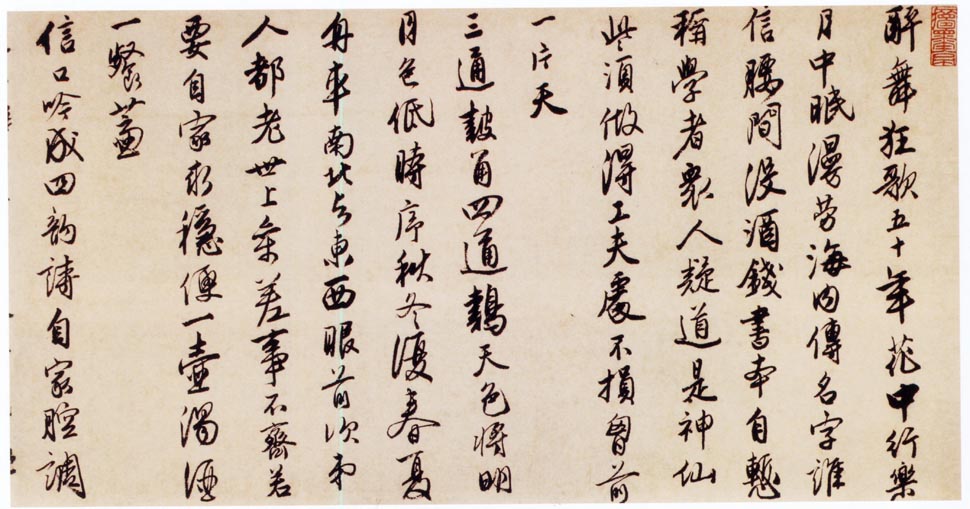 醉舞狂歌五十年花中行樂
月中眠漫勞海內傳名字誰
信腰間沒酒錢書本自慙
稱學者衆人疑道是神仙
些須做得工夫處不損胸前
一片天
三通鼓角四通鷄天色將明
月色低時序秋冬復春夏
舟車南北与東西眼前次弟
人都老世上參差事不齊若
要自家求穩便一壺濁酒
一餐虀
信口吟成四韵詩自家腔調